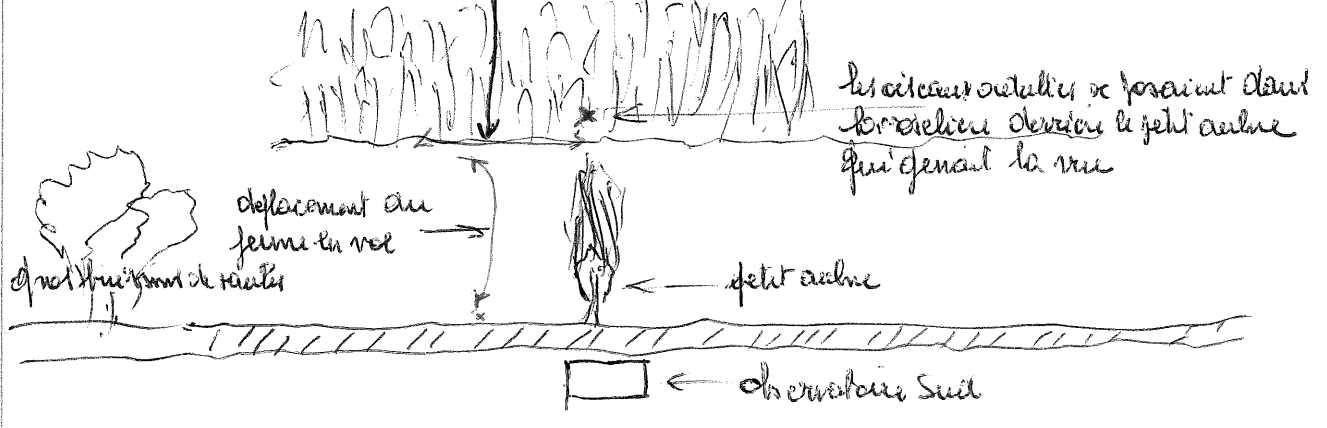 les oiseaux adultes se posaient dans
la roselière derrière le petit aulne
qui genait la vue
deplacement du
jeune en vol
gros buissons de saules
petit aulne
observatoire Sud